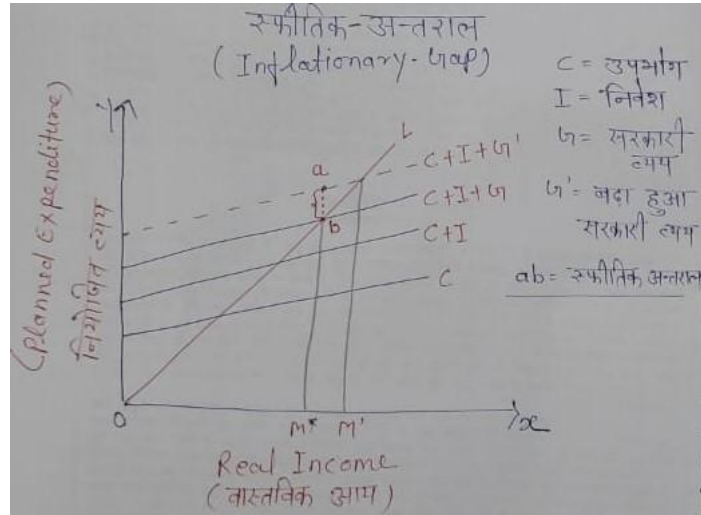 स्फीतिक-अन्तराल
(Inflationary-Gap)
C = उपभोग
I = निवेश
G = सरकारी
व्यय
G' = बढ़ा हुआ
सरकारी व्यय
ab = स्फीतिक अन्तराल
Y
(Planned Expenditure)
नियोजित व्यय
L
C+I+G'
a
C+I+G
b
C+I
C
O
M*
M'
x
Real Income
(वास्तविक आय)